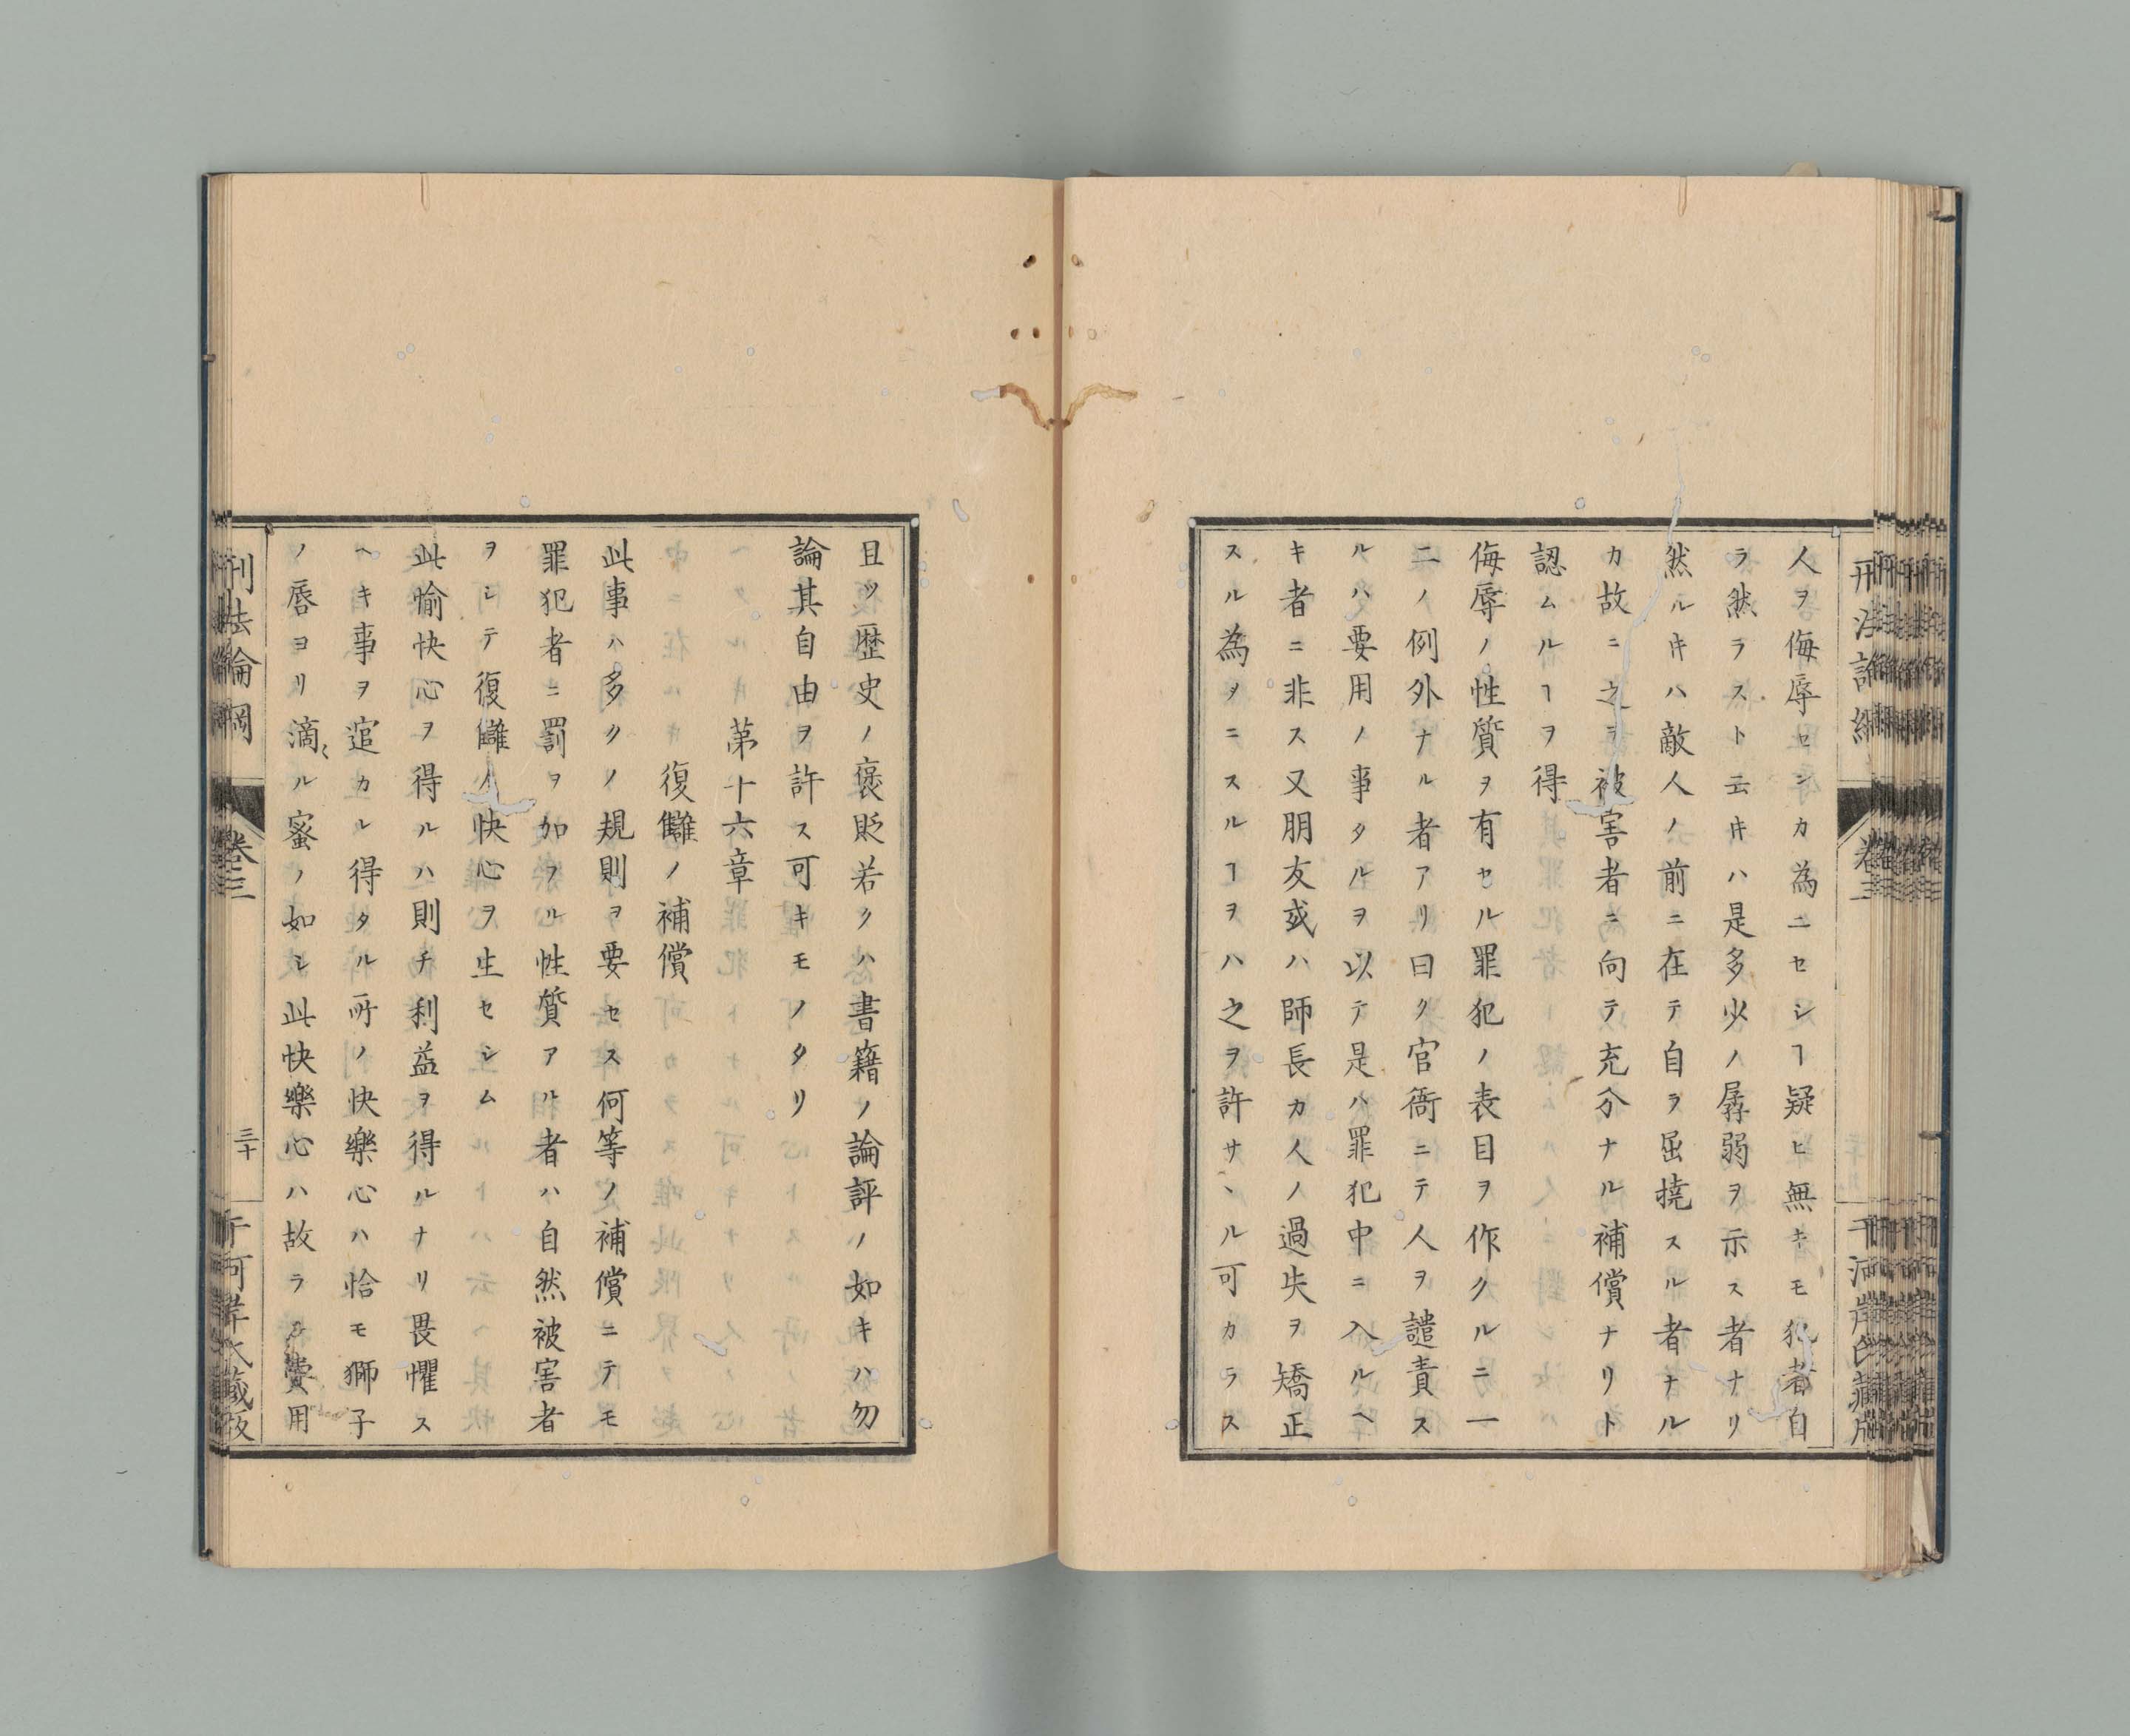 人ヲ侮辱セシカ為ニセシヿ疑ヒ無キモ犯者自
ラ然ラスト云キハ是多少ノ孱弱ヲ示ス者ナリ
然ルキハ敵人ノ前ニ在テ自ラ屈撓スル者ナル
カ故ニ之ヲ被害者ニ向テ充分ナル補償ナリト
認ムルヿヲ得
侮辱ノ性質ヲ有セル罪犯ノ表目ヲ作クルニ一
二ノ例外ナル者アリ曰ク官衙ニテ人ヲ譴責ス
ルハ要用ノ事タルヲ以テ是ハ罪犯中ニ入ルヘ
キ者ニ非ス又朋友或ハ師長カ人ノ過失ヲ矯正
スル為メニスルヿヲハ之ヲ許サヽル可カラス
且ツ歴史ノ褒貶若クハ書籍ノ論評ノ如キハ勿
論其自由ヲ許ス可キモノタリ
第十六章
復讎ノ補償
此事ハ多クノ規則ヲ要セス何等ノ補償ニテモ
罪犯者ニ罰ヲ加フル性質アル者ハ自然被害者
ヲシテ復讎ノ快心ヲ生セシム
此愉快心ヲ得ルハ則チ利益ヲ得ルナリ畏懼ス
ヘキ事ヲ逭カル得タル所ノ快樂心ハ恰モ獅子
ノ唇ヨリ滴ヽル蜜ノ如シ此快樂心ハ故ラニ費用
刑法論綱
卷三
三十
于河岸氏藏版